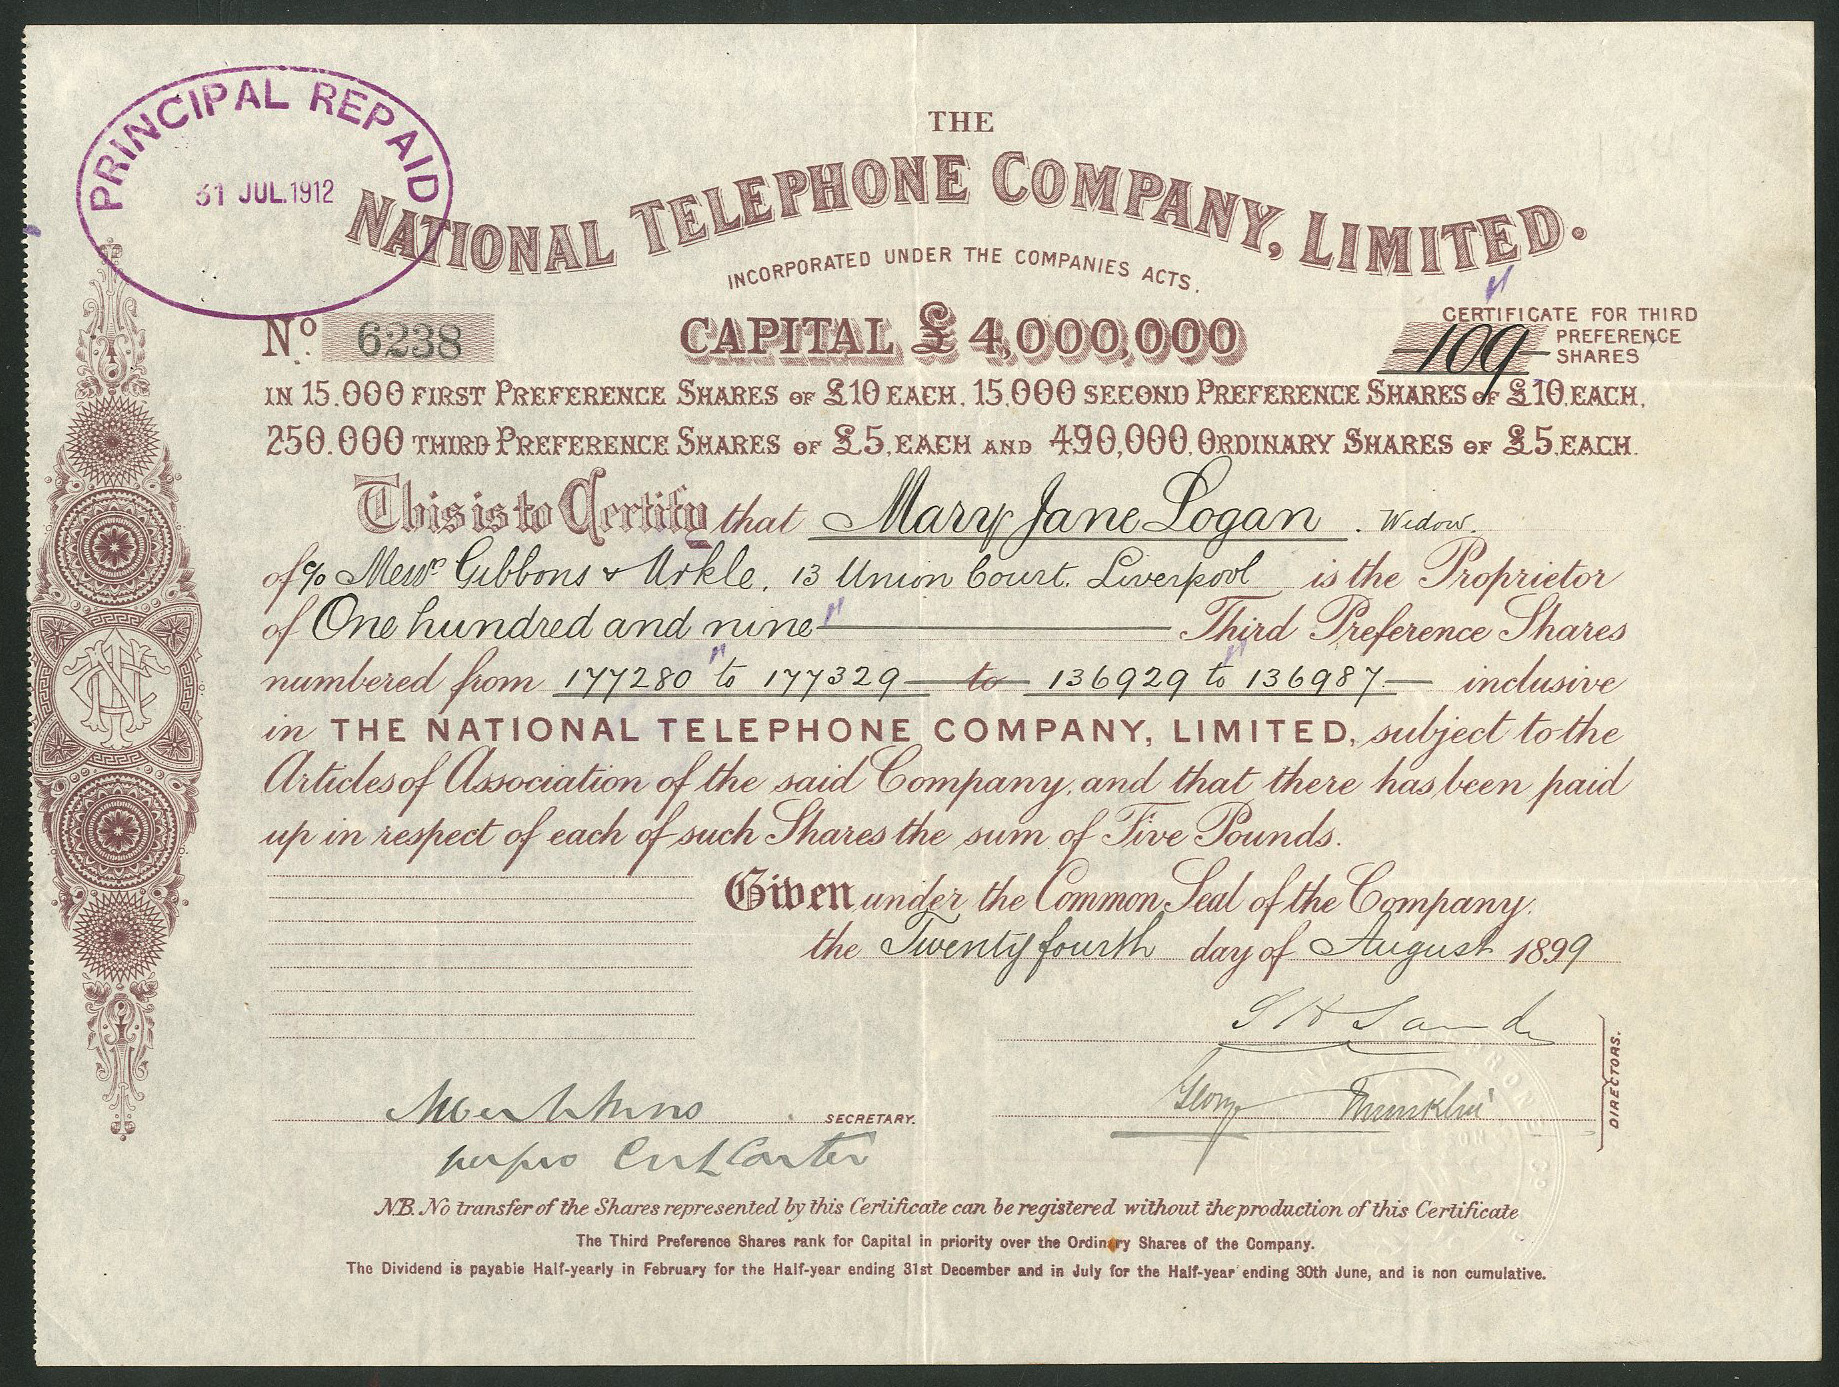 PRINCIPAL REPAID
31 JUL.1912
THE
NATIONAL TELEPHONE COMPANY, LIMITED.
INCORPORATED UNDER THE COMPANIES ACTS.
Nº 6238
CAPITAL £4,000,000
CERTIFICATE FOR THIRD
109 PREFERENCE
SHARES
IN 15.000 FIRST PREFERENCE SHARES OF £10 EACH, 15,000 SECOND PREFERENCE SHARES OF £10 EACH,
250.000 THIRD PREFERENCE SHARES OF £5, EACH AND 490,000, ORDINARY SHARES OF £5, EACH.
This is to Certify that Mary Jane Logan. Widow.
of c/o Messrs Gibbons & Arkle, 13 Union Court. Liverpool is the Proprietor
of One hundred and nine Third Preference Shares
numbered from 177280 to 177329 to 136929 to 136987 inclusive
in THE NATIONAL TELEPHONE COMPANY, LIMITED, subject to the
Articles of Association of the said Company, and that there has been paid
up in respect of each of such Shares the sum of Five Pounds.
Given under the Common Seal of the Company.
the Twenty fourth day of August 1899
George Franklin
DIRECTORS.
SECRETARY.
per pro Carter
N.B. No transfer of the Shares represented by this Certificate can be registered without the production of this Certificate
The Third Preference Shares rank for Capital in priority over the Ordinary Shares of the Company.
The Dividend is payable Half-yearly in February for the Half-year ending 31st December and in July for the Half-year ending 30th June, and is non cumulative.